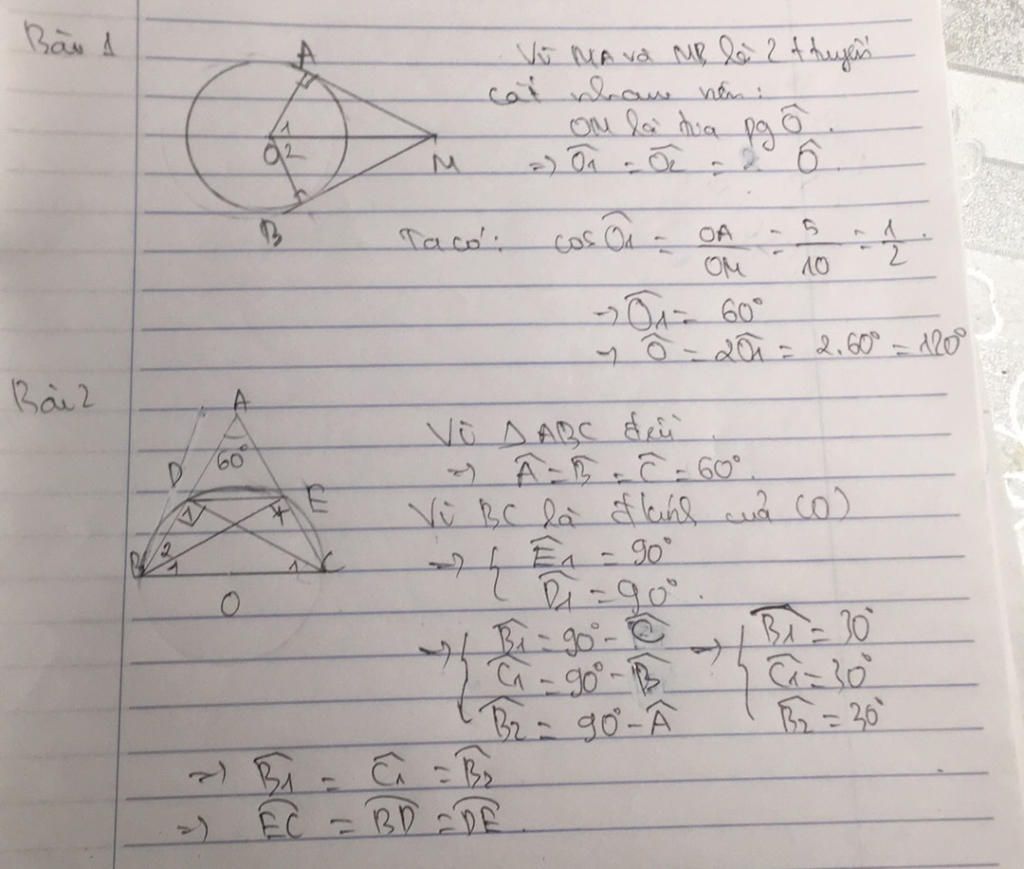 Bài 1
A
1
O 2
M
B
Vì MA và MB là 2 t tuyến
cắt nhau nên:
OM là tia pg Ô.
=> Ô1 = Ô2 = Ô.
Ta có: cos Ô1 = OA/OM = 5/10 = 1/2.
→ Ô1 = 60°
→ Ô = 2Ô1 = 2.60° = 120°
Bài 2
A
60°
D E
1 1
B 2 1 1 C
O
Vì △ABC đều
=> Â = B̂ = Ĉ = 60°.
Vì BC là đkính của (O)
→ { Ê1 = 90°
D̂1 = 90°.
→ { B̂1 = 90° - Ĉ → { B̂1 = 30°
Ĉ1 = 90° - B̂ Ĉ1 = 30°
B̂2 = 90° - Â B̂2 = 30°
=> B̂1 = Ĉ1 = B̂2
=> EC = BD = DE.